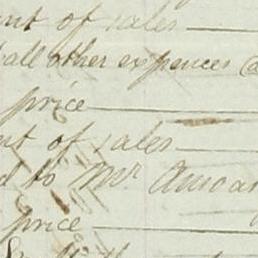 nt of sales
all other expences
price
nt of sales
d to Mr
price